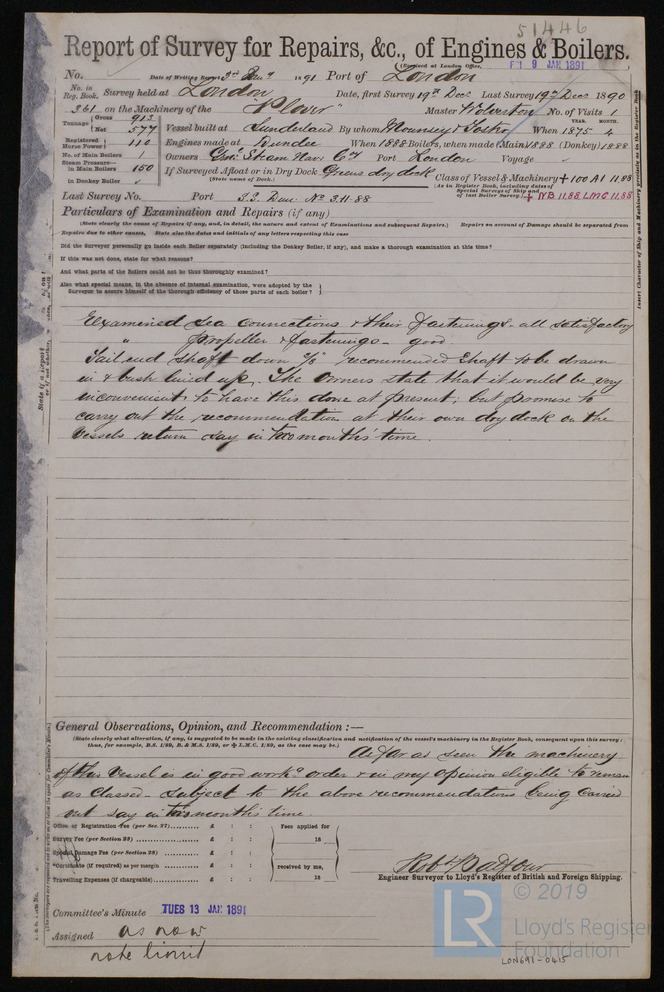 51446
Report of Survey for Repairs, &c., of Engines & Boilers.
(Received at London Office, FRI 9 JAN 1891
No. Date of Writing Report 3rd Jany 1891 Port of London
No. in Reg. Book. Survey held at London Date, first Survey 19th Dec Last Survey 19th Dec 1890
361 on the Machinery of the "Plover" Master Wolverston No. of Visits 1
Tonnage Gross 913 Net 577 Vessel built at Sunderland By whom Mounsey & Foster When YEAR. 1875 MONTH. 4
Registered Horse Power 110 Engines made at Dundee When 1888 Boilers, when made (Main) 1888 (Donkey) 1888
No. of Main Boilers 1 Owners Genl. Steam Navn Coy Port London Voyage
Steam Pressure in Main Boilers 160 If Surveyed Afloat or in Dry Dock Greens dry dock Class of Vessel & Machinery + 100 A1 11.88
(State name of Dock.) (As in Register Book, including dates of Special Surveys of Ship and of last Boiler Survey.) + NB 11.88, LMC 11.88
in Donkey Boiler
Last Survey No. Port S.S. Dun. No 3.11.88
Particulars of Examination and Repairs (if any)
(State clearly the cause of Repairs if any, and, in detail, the nature and extent of Examinations and subsequent Repairs.) Repairs on account of Damage should be separated from
Repairs due to other causes. State also the dates and initials of any letters respecting this case
Did the Surveyor personally go inside each Boiler separately (including the Donkey Boiler, if any), and make a thorough examination at this time?
If this was not done, state for what reasons?
And what parts of the Boilers could not be thus thoroughly examined?
Also what special means, in the absence of internal examination, were adopted by the
Surveyor to assure himself of the thorough efficiency of those parts of each boiler?
Examined sea connections & their fastenings - all satisfactory
" propeller & fastenings - good.
Tail end shaft down 3/8" recommended shaft to be drawn
in & bush lined up. The owners state that it would be very
inconvenient to have this done at present; but promise to
carry out the recommendation at their own dry dock on the
vessels return say in two months' time.
General Observations, Opinion, and Recommendation :—
(State clearly what alteration, if any, is suggested to be made in the existing classification and notification of the vessel's machinery in the Register Book, consequent upon this survey:
thus, for example, B.S. 1/89, B. & M.S. 1/89, or ✠ L.M.C. 1/89, as the case may be.)
As far as seen the machinery
of this vessel is in good workg order & in my opinion eligible to remain
as classed - subject to the above recommendations being carried
out say in two months time
Office or Registration Fee (per Sec. 27)........... £ : : Fees applied for
Survey Fee (per Section 28)........... £ : : 18
Special Damage Fee (per Section 28)........... £ : :
*Certificate (if required) as per margin........... £ : : received by me,
Travelling Expenses (if chargeable)........... £ : : 18
Robt Balfour
Engineer Surveyor to Lloyd's Register of British and Foreign Shipping.
Committee's Minute TUES 13 JAN 1891
Assigned as now
note limit
LON691-0415
LR
© 2019
Lloyd's Register
Foundation